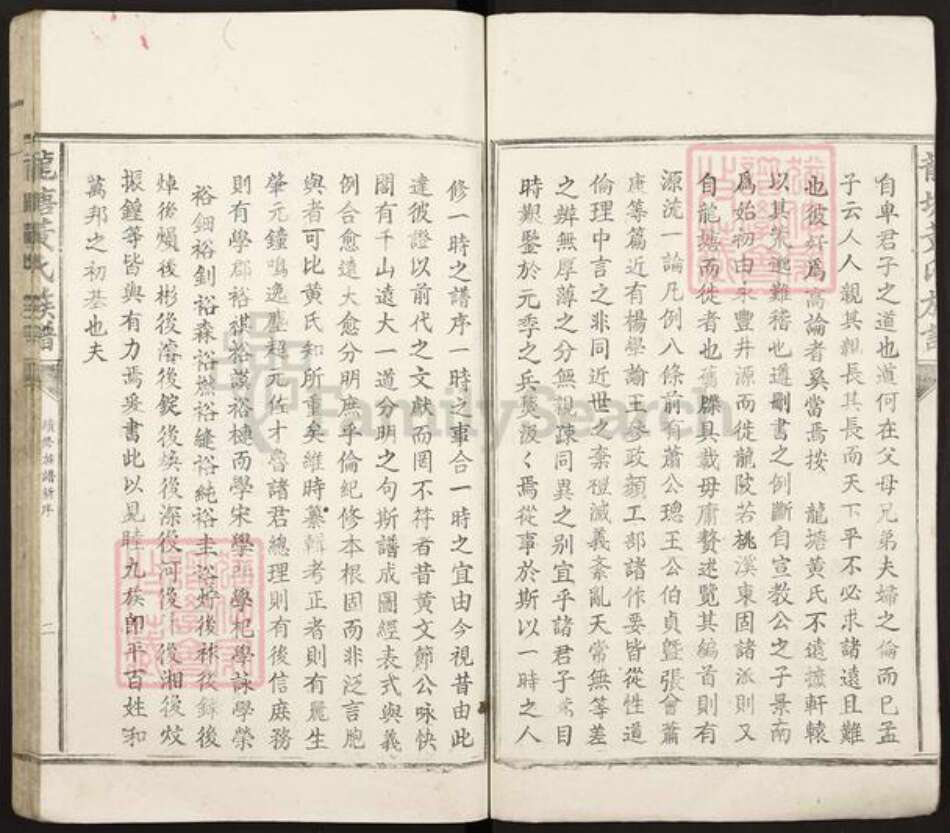 自卑君子之道也道何在父母兄弟夫婦之倫而已孟
子云人人親其親長其長而天下平不必求諸遠且難
也彼好為高論者奚當焉按 龍塘黃氏不遠摭軒轅
以其荒邈難稽也遵刪書之例斷自宣教公之子景南
為始初由永豐井源而徙龍陂若桃溪東固諸派則又
自龍塘而徙者也舊牒具載毋庸贅述覽其編首則有
源流一論凡例八條前有蕭公璁王公伯貞暨張會蕭
庚等篇近有楊學諭王參政顏工部諸作要皆從性道
倫理中言之非同近世之棄禮滅義紊亂天常無等差
之辨無厚薄之分無親疎同異之別宜乎諸君子目
時艱鑒於元季之兵燹汲〱焉從事於斯以一時之人
修一時之譜序一時之事合一時之宜由今視昔由此
達彼證以前代之文獻而罔不符者昔黃文節公咏快
閣有千山遠大一道分明之句斯譜成圖經表式與義
例合愈遠大愈分明庶乎倫紀修本根固而非泛言胞
與者可比黃氏知所重矣維時纂輯考正者則有麗生
肇元鐘鳴逸塵超元佐才魯諸君總理則有後信庶務
則有學郡裕祺裕談裕槤而學宋學學杞學詠學榮
裕鈿裕釗裕森裕撫裕縫裕純裕圭裕後秫後後
焯後熉後彬後濬後錠後煥後深後河後後湘後炆
振鍠等皆與有力焉爰書此以見睦九族即平百姓和
萬邦之初基也夫
龍塘黃氏族譜
續修族譜新序
二
龍塘黃氏族譜
FamilySearch